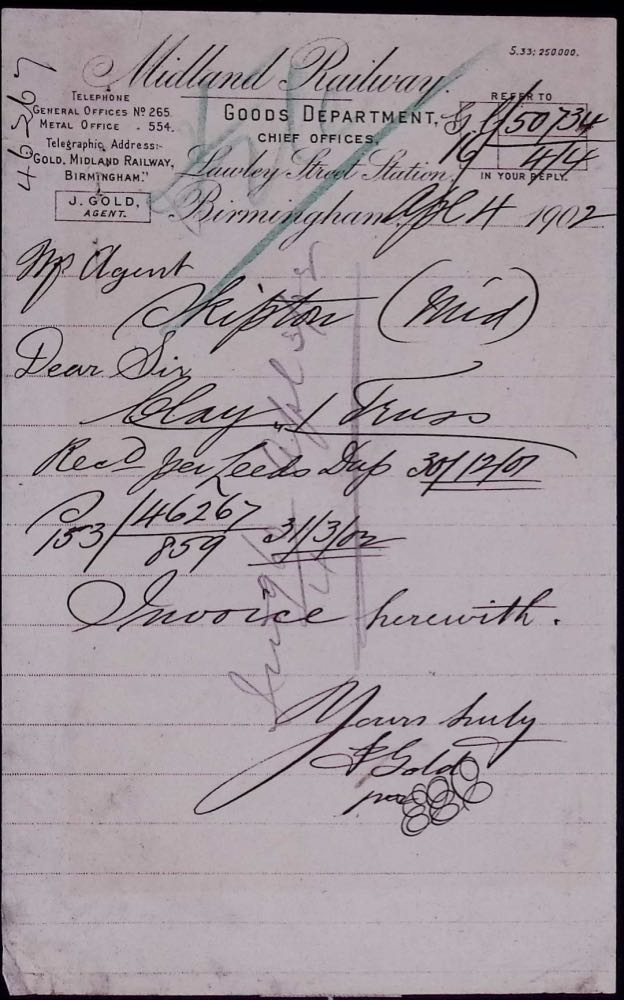 S.33; 250000.
46267
Midland Railway.
TELEPHONE
GENERAL OFFICES Nº 265.
METAL OFFICE - 554.
Telegraphic Address:-
"GOLD, MIDLAND RAILWAY,
BIRMINGHAM."
J. GOLD,
AGENT.
GOODS DEPARTMENT,
CHIEF OFFICES,
Lawley Street Station,
REFER TO
G 16 50734
4/4
IN YOUR REPLY.
Birmingham, Apl 4 1902
Mr Agent
Skipton (Mid)
Dear Sir
Clay 1 Truss
Recd per Leeds Dup 30/12/01
P 153 / 46267
859 31/3/02
Invoice herewith.
Yours truly
J Gold